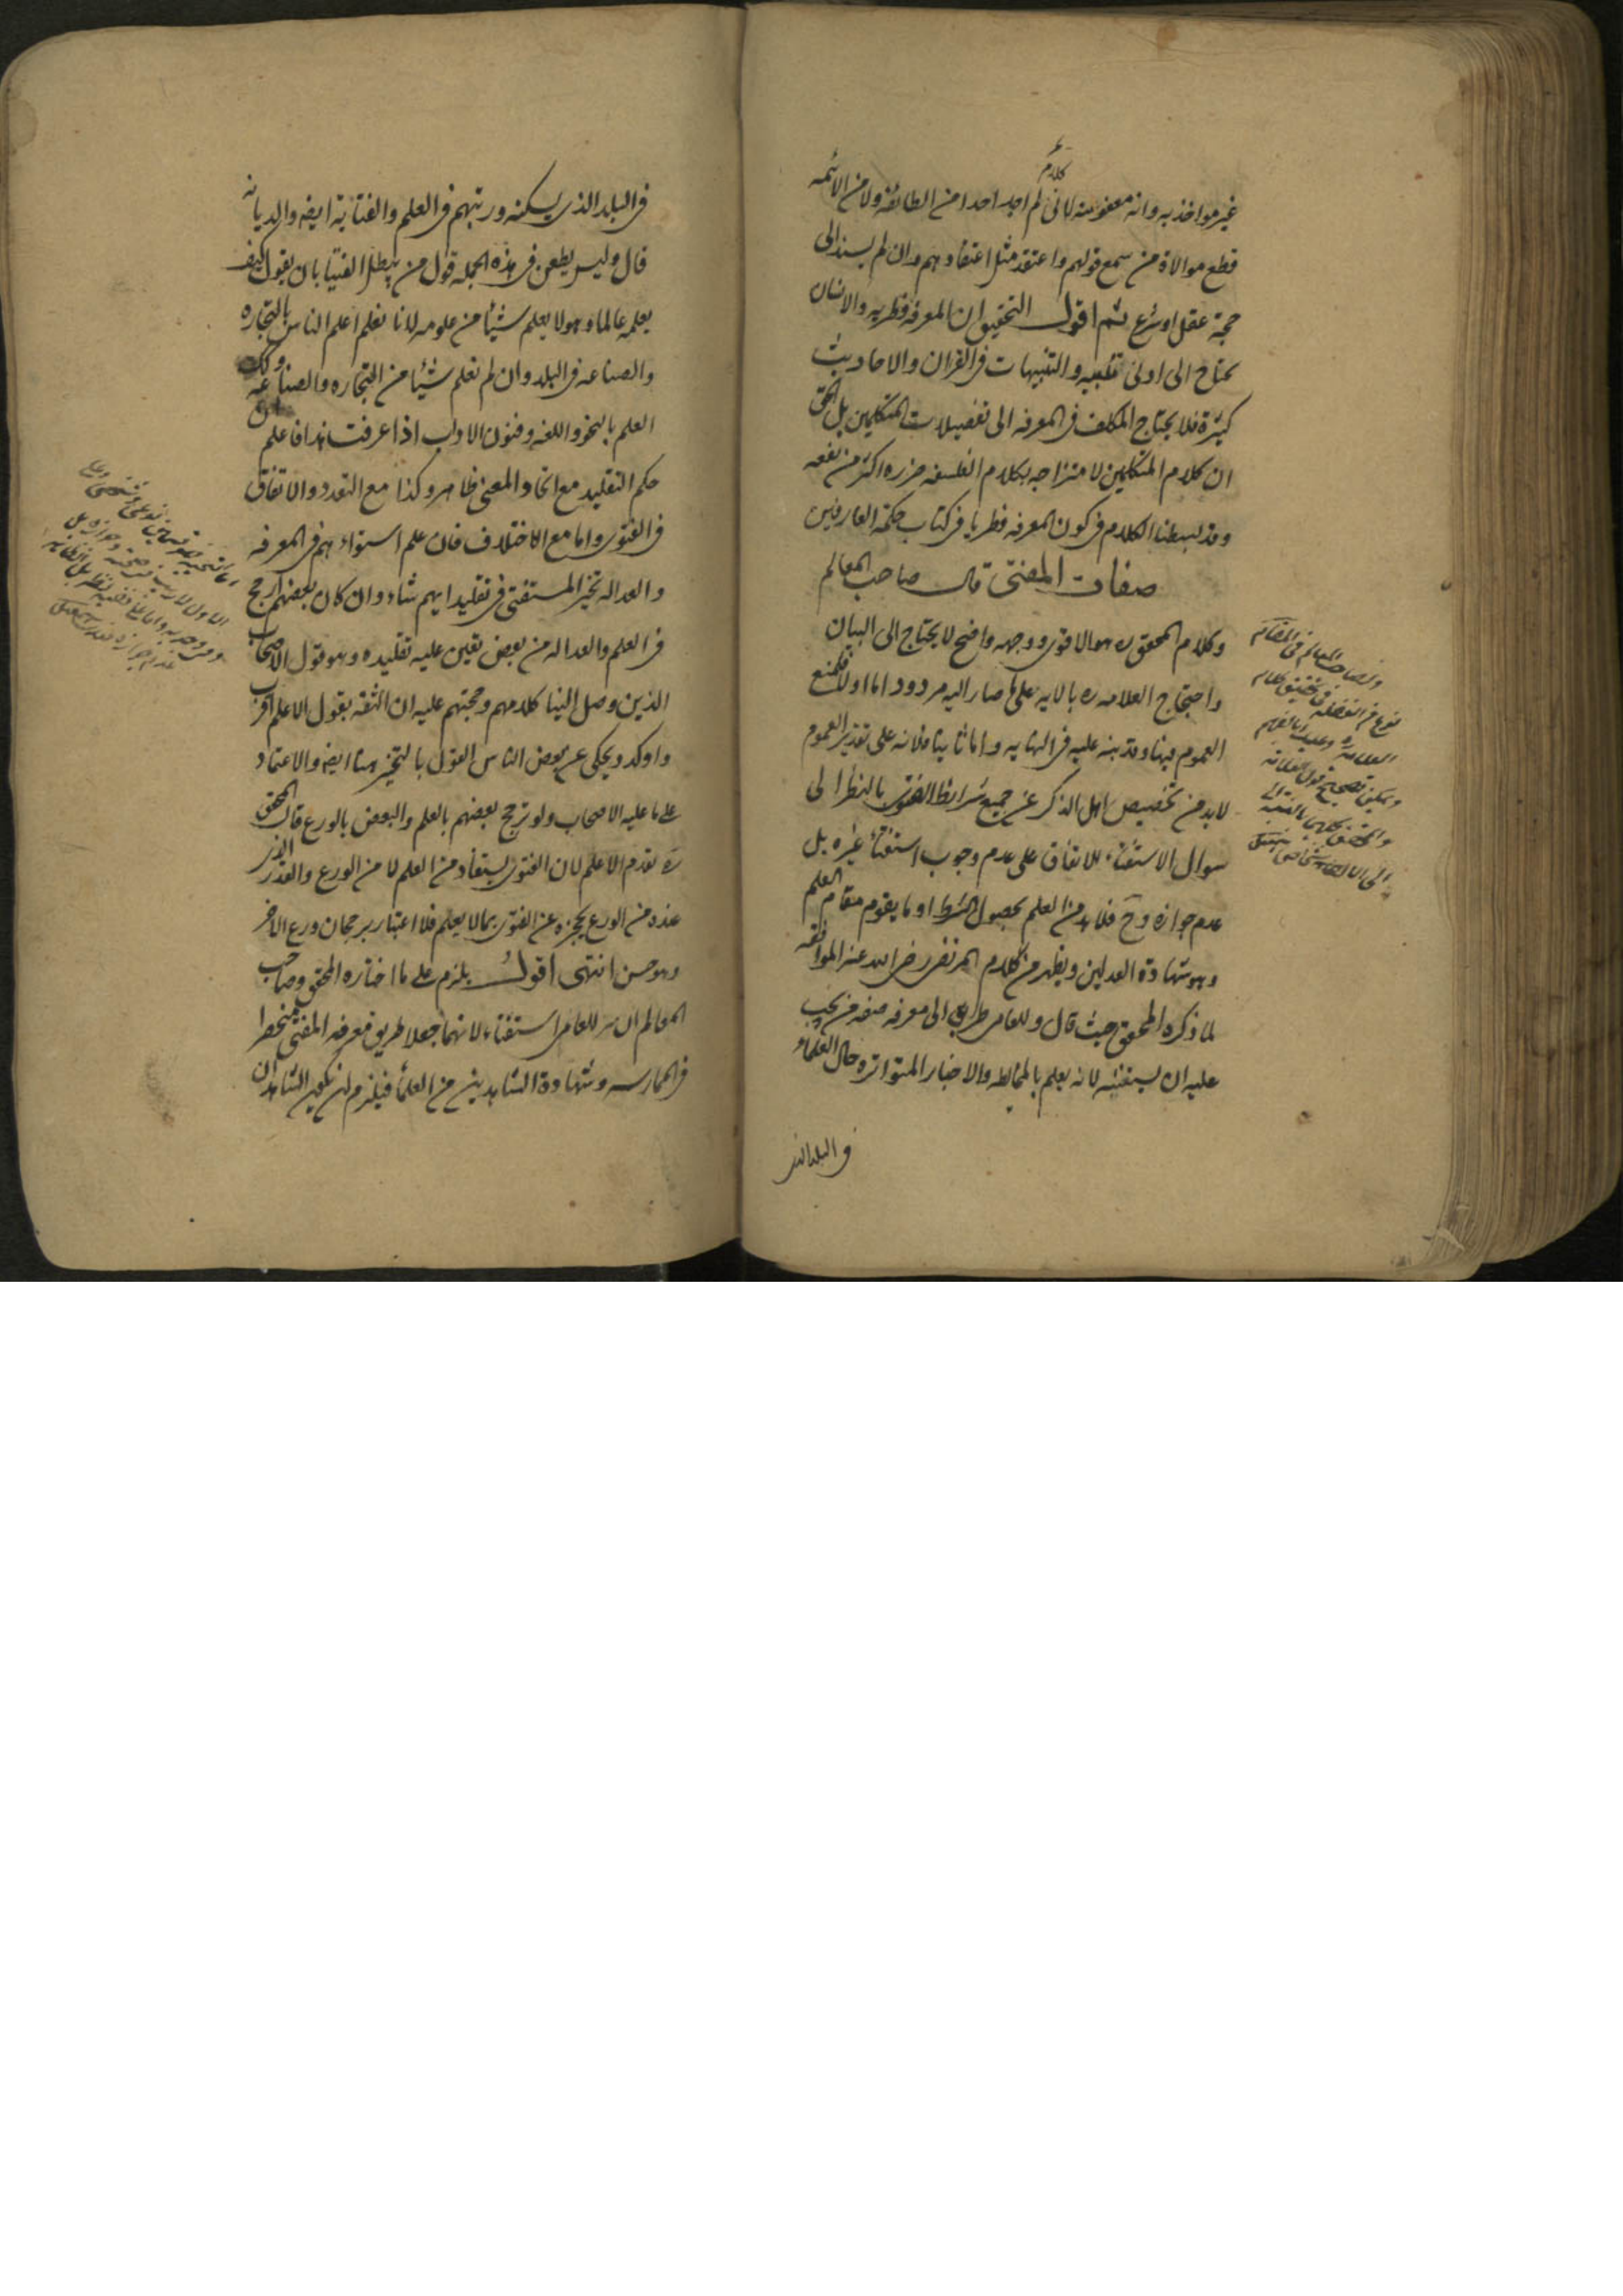 غير مواخذ به وانه معفو عنه لانى لم اجد احدا من الطائفة ولا من الائمه
كلام
قطع موالاة من سمع قولهم واعتقد مثل اعتقادهم وان لم يسند الى
حجة عقل او شرع ثم اقول التحقيق ان المعرفه فطريه والانسان
يحتاج الى ادنى تنبيه والتنبيهات فى القران والاحاديث
كثيرة فلا يحتاج المكلف فى المعرفه الى تفصيلات المتكلمين بل الحق
ان كلام المتكلمين لامتزاجه بكلام الفلسفه ضرره اكثر من نفعه
وقد بسطنا الكلام فى كون المعرفه فطريا فى كتاب حكمة العارفين
صفات المفتى قال صاحب المعالم
وكلام المحقق ره هو الاقوى ووجهه واضح لا يحتاج الى البيان
واحتجاج العلامه ره بالايه على ما صار اليه مردود اما اولا فلمنع
العموم فيها وقد نبه عليه فى النهايه واما ثانيا فلانه على تقدير العموم
لا بد من تخصيص اهل الذكر عن جميع شرايط الفتوى بالنظر الى
سوال الاستفتاء للاتفاق على عدم وجوب استفتاء غيره بل
عدم جوازه وح فلا بد من العلم بحصول الشرط او ما يقوم مقام العلم
وهو شهادة العدلين ويظهر من كلام المرتضى رضى الله عنه الموافقه
لما ذكره المحقق حيث قال وللعامى طريق الى معرفه صفه من يجب
عليه ان يستفتيه لانه يعلم بالمخالطه والاخبار المتواتره حال العلماء
فى البلد الذى
ولصاحب المعالم فى المقام
نوع من الغفلة فى تحقيق كلام
العلامه ره
فى البلد الذى يسكنه ورتبهم فى العلم والفتاية ايضا والديانه
قال وليس يطعن فى هذه الجمله قول من يبطل الفتيا بان يقول كيف
يعلمه عالما وهو لا يعلم شيئا من علومه لانا نعلم اعلم الناس بالتجاره
والصناعه فى البلد وان لم نعلم شيئا من التجاره والصناعه وكذلك
العلم بالنحو واللغه وفنون الاداب اذا عرفت هذا فاعلم
حكم التقليد مع اتحاد المفتى ظاهر وكذا مع التعدد والاتفاق
فى الفتوى واما مع الاختلاف فان علم استواءهم فى المعرفه
والعداله تخير المستفتى فى تقليد ايهم شاء وان كان بعضهم ارجح
فى العلم والعداله من بعض تعين عليه تقليده وهو قول الاصحاب
الذين وصل الينا كلامهم وحجتهم عليه ان الثقة بقول الاعلم اقرب
واوكد ويحكى عن بعض الناس القول بالتخيير هنا ايضا والاعتماد
على ما عليه الاصحاب ولو ترجح بعضهم بالعلم والبعض بالورع قال المحقق
ره تقدم الاعلم لان الفتوى يستفاد من العلم لا من الورع والقدر الذى
عنده من الورع يحجزه عن الفتوى بما لا يعلم فلا اعتبار برجحان ورع الاخر
وهو حسن انتهى اقول يلزم على ما اختاره المحقق وصاحب
المعالم ان للعامى استفتاء لانهما جعلا طريق معرفه المفتى منحصرا
فى الممارسه وشهادة الشاهدين من العلماء فيلزم ان يكون الشاهدان